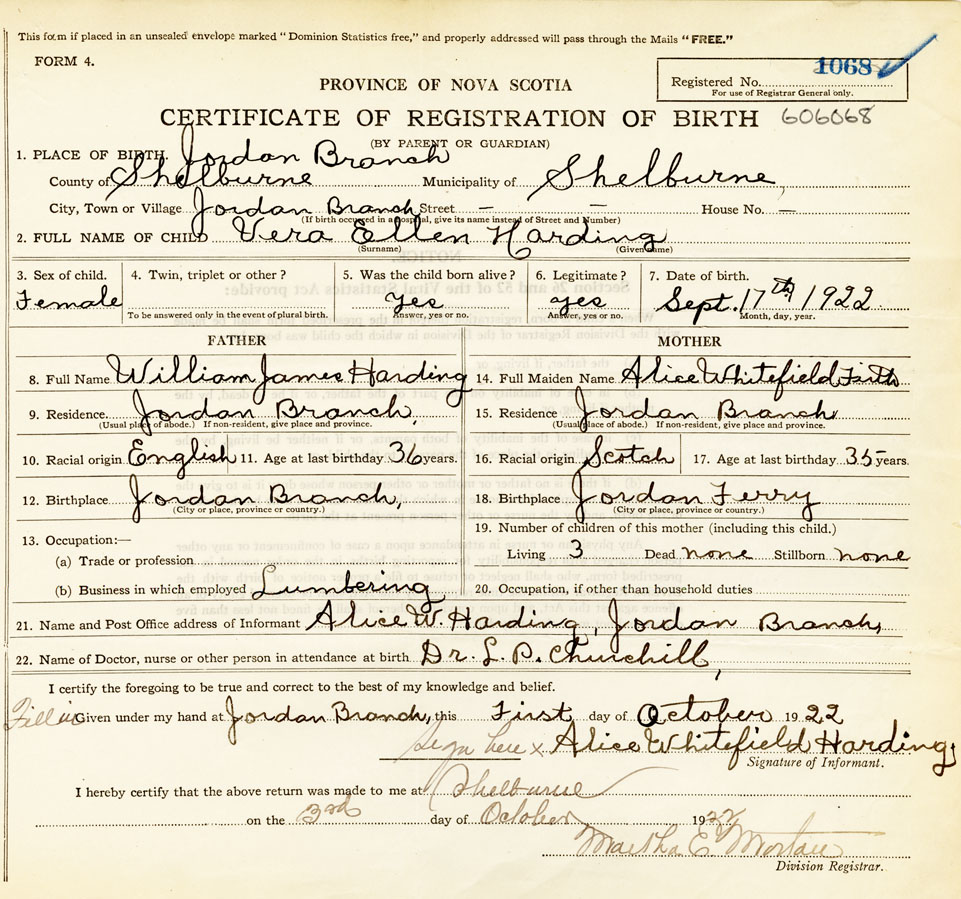 This form if placed in an unsealed envelope marked "Dominion Statistics free," and properly addressed will pass through the Mails "FREE."
FORM 4.
Registered No. 1068
For use of Registrar General only.
PROVINCE OF NOVA SCOTIA
CERTIFICATE OF REGISTRATION OF BIRTH 606068
(BY PARENT OR GUARDIAN)
1. PLACE OF BIRTH. Jordan Branch
County of Shelburne Municipality of Shelburne,
City, Town or Village Jordan Branch Street — — House No. —
(If birth occurred in a hospital, give its name instead of Street and Number)
2. FULL NAME OF CHILD Vera Ellen Harding
(Surname) (Given name)
3. Sex of child. 4. Twin, triplet or other? 5. Was the child born alive? 6. Legitimate? 7. Date of birth.
Female yes yes Sept. 17th, 1922
To be answered only in the event of plural birth. Answer, yes or no. Answer, yes or no. Month, day, year.
FATHER MOTHER
8. Full Name William James Harding 14. Full Maiden Name Alice Whitefield Firth
9. Residence Jordan Branch, 15. Residence Jordan Branch
(Usual place of abode.) If non-resident, give place and province. (Usual place of abode.) If non-resident, give place and province.
10. Racial origin English 11. Age at last birthday 36 years. 16. Racial origin Scotch 17. Age at last birthday 35 years.
12. Birthplace Jordan Branch, 18. Birthplace Jordan Ferry
(City or place, province or country.) (City or place, province or country.)
13. Occupation:— 19. Number of children of this mother (including this child.)
(a) Trade or profession Living 3 Dead none Stillborn none
(b) Business in which employed Lumbering 20. Occupation, if other than household duties
21. Name and Post Office address of Informant Alice W. Harding, Jordan Branch,
22. Name of Doctor, nurse or other person in attendance at birth Dr. L. P. Churchill,
I certify the foregoing to be true and correct to the best of my knowledge and belief.
Fill in Given under my hand at Jordan Branch, this First day of October 1922
Sign here x Alice Whitefield Harding,
Signature of Informant.
I hereby certify that the above return was made to me at Shelburne
on the 3rd day of October 1922
Martha E.
Division Registrar.